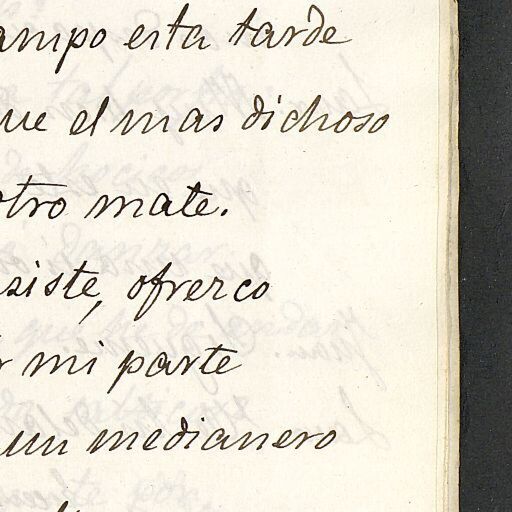 ampo esta tarde
ue el mas dichoso
otro mate.
siste, ofrerco
r mi parte
un medianero